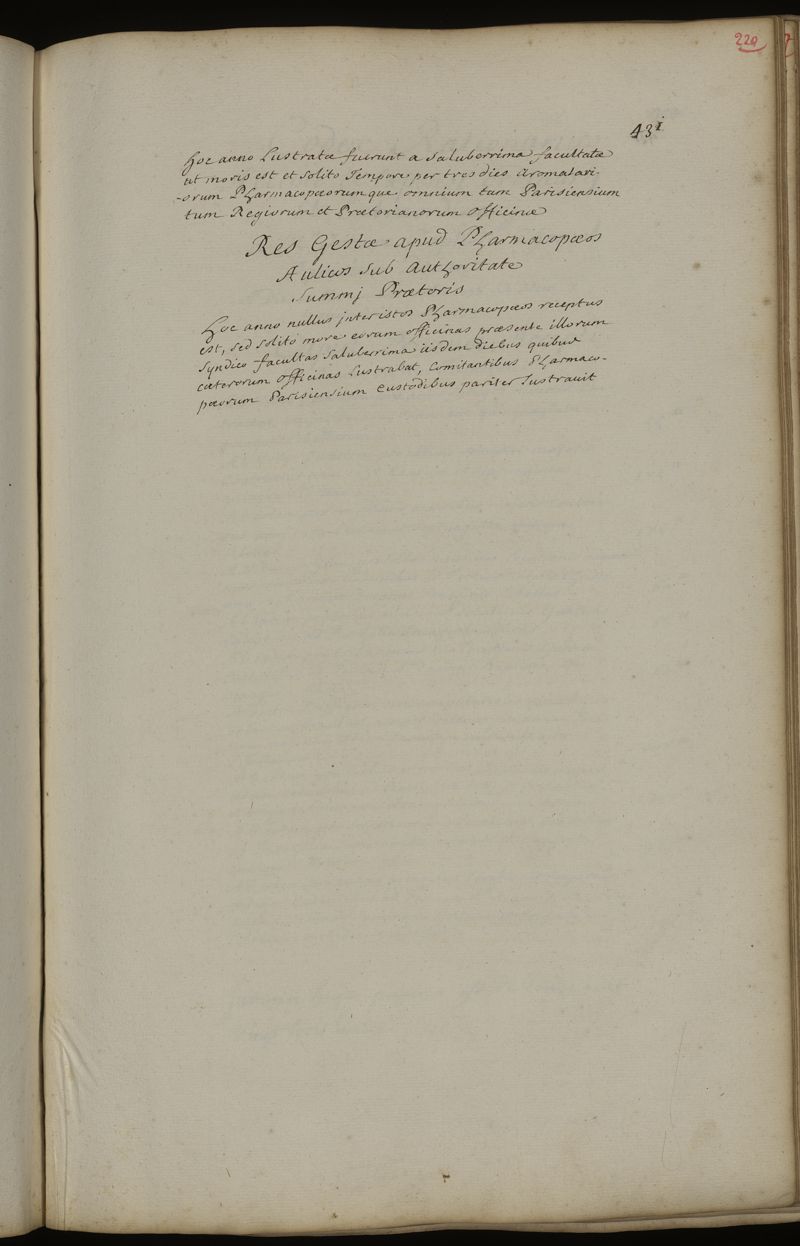 220
431
Hoc anno Lustratæ fuerunt a Saluberrima facultate
ut moris est et Solito Tempore per tres dies Aromatari-
-orum Pharmacopœorumque omnium tum Parisiensium
tum Regiorum et Prætorianorum Officinæ
Res Gestæ apud Pharmacopæos
Aulicos Sub Authoritate
Summj Prætoris
Hoc anno nullus jnter istos Pharmacopæos receptus
est, Sed Solito more eorum officinas præsente illorum
Syndico facultas Saluberrima iisdem diebus quibus
cæterorum Officinas Lustrabat, Comitantibus Pharmaco-
pæorum Parisiensium Custodibus pariter Lustravit